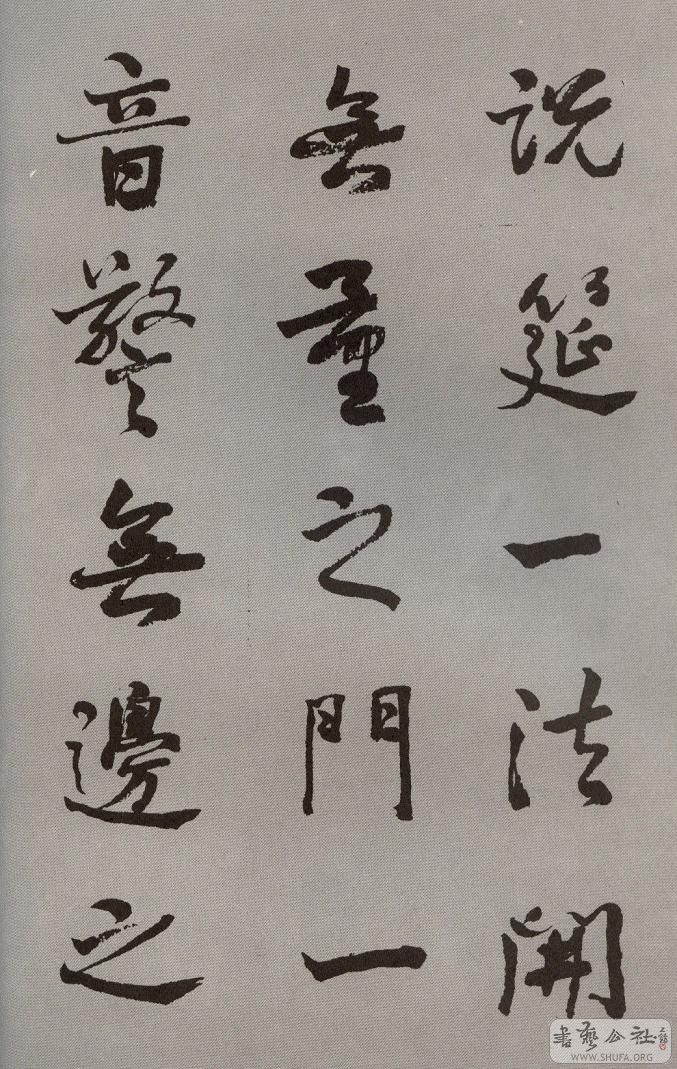 說筵一法開
無量之門一
音警無邊之
書藝公社
WWW.SHUFA.ORG